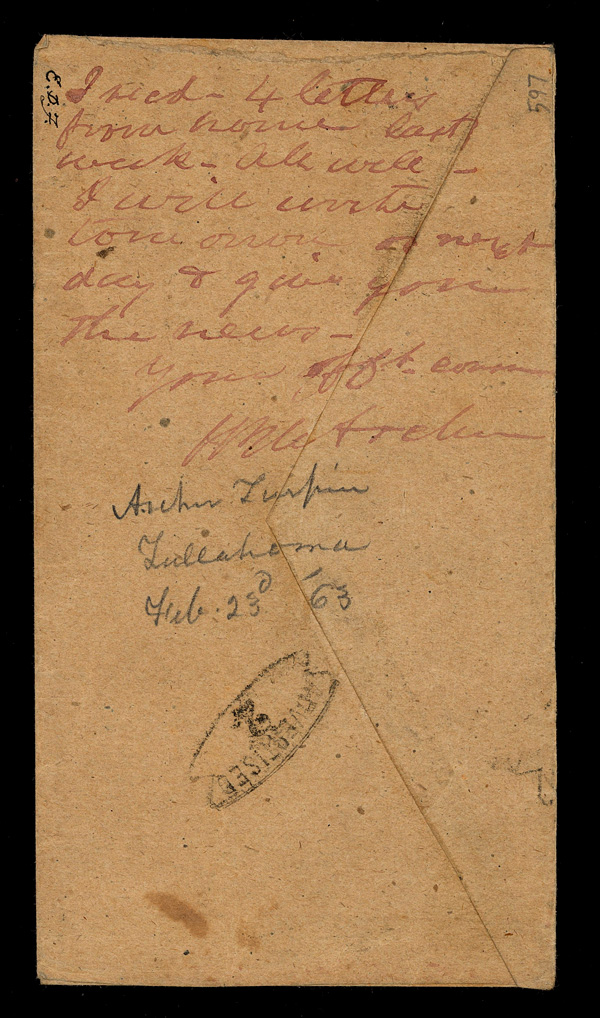 I recd - 4 letters
from home last
week - All well -
I will write
tomorrow or next
day & give you
the news -
Your afft. cousin
Archer
Archer Turpin
Tullahoma
Feb. 23d '63
ADVERTISED
2
597